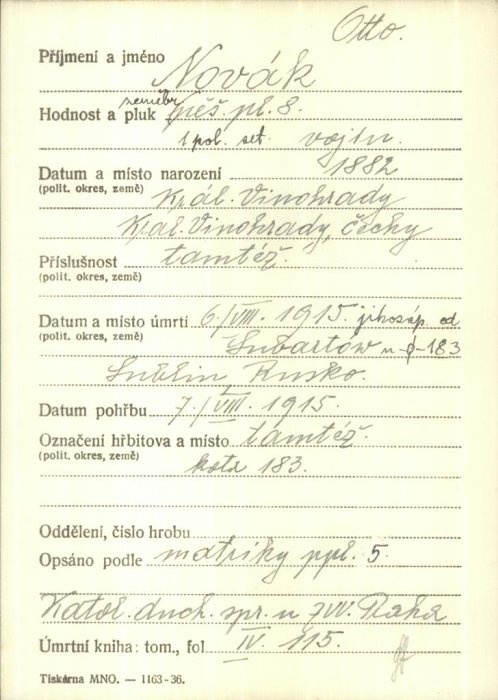 Otto.
Příjmení a jméno Novák
Hodnost a pluk zeměbr. pěš. pl. 8.
1 pol. set. vojín.
Datum a místo narození 1882
(polit. okres, země) Král. Vinohrady
Král. Vinohrady, Čechy
Příslušnost tamtéž.
(polit. okres, země)
Datum a místo úmrtí 6./VIII. 1915. jihozáp. od
(polit. okres, země) Lubartów u -⌀-183
Lublin, Rusko.
Datum pohřbu 7./VIII. 1915.
Označení hřbitova a místo tamtéž.
(polit. okres, země) kota 183.
Oddělení, číslo hrobu
Opsáno podle matriky ppl. 5
Katol. duch. spr. u ZVV. Praha
Úmrtní kniha: tom., fol IV. 115.
Tiskárna MNO. — 1163-36.